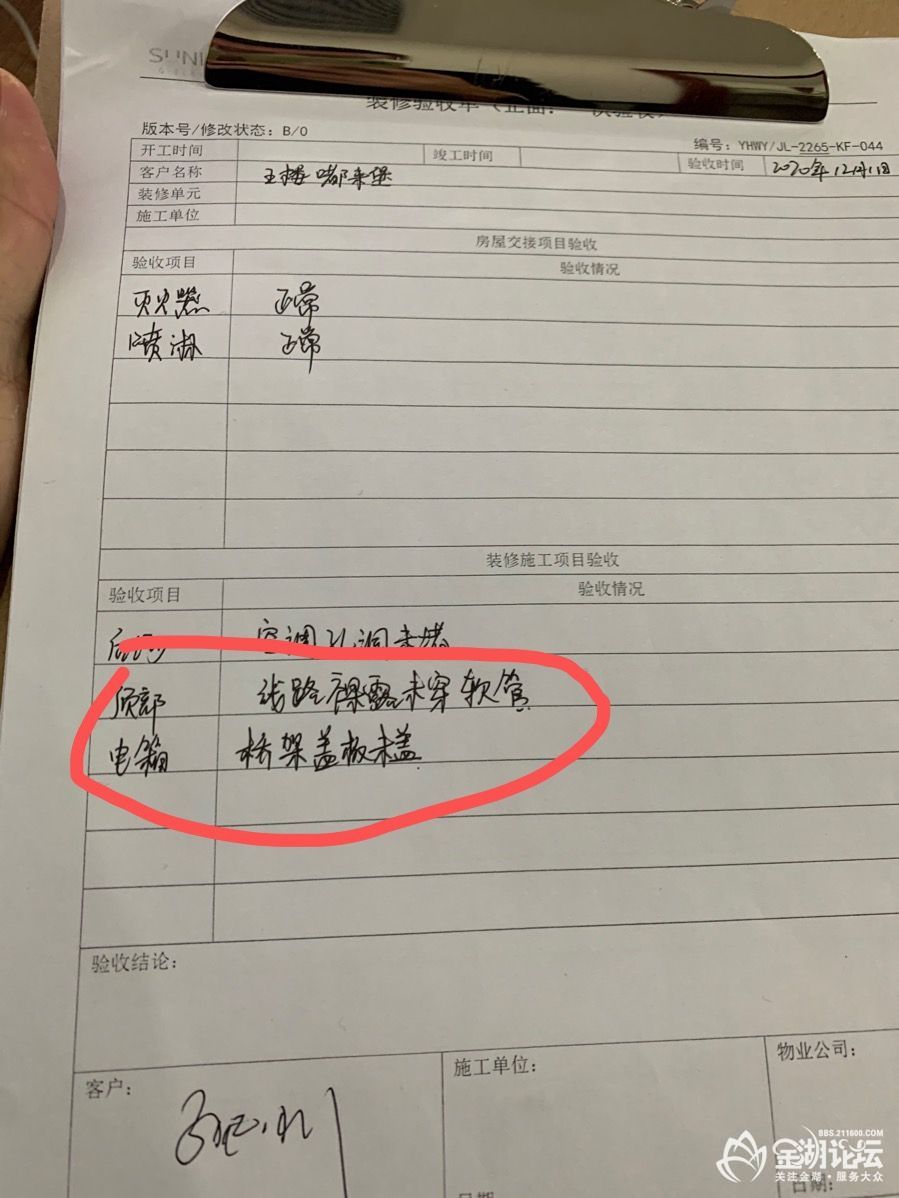 SUN
版本号/修改状态：B/0
编号：YHWY/JL-2265-KF-044
开工时间 竣工时间 验收时间 2020年12月11日
客户名称
装修单元
施工单位
房屋交接项目验收
验收项目 验收情况
灭火器 正常
喷淋 正常
装修施工项目验收
验收项目 验收情况
空调孔洞未堵
顶部 线路裸露未穿软管
电箱 桥架盖板未盖
验收结论：
客户： 施工单位： 物业公司：
日期：
BBS.211600.COM
金湖论坛
关注金湖·服务大众